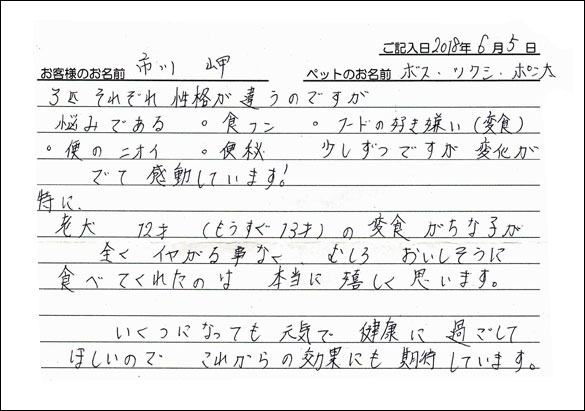 ご記入日2018年6月5日
お客様のお名前 市川 岬 ペットのお名前 ボス・ツクシ・ポン太
3匹それぞれ 性格が違うのですが
悩みである ◦食フン ◦フードの好き嫌い(変食)
◦便のニオイ ◦便秘 少しずつですが 変化が
でて 感動しています!
特に、
老犬 12才 (もうすぐ13才)の 変食がちな子が
全くイヤがる事なく、むしろ おいしそうに
食べてくれたのは 本当に嬉しく思います。
いくつになっても 元気で 健康に 過ごして
ほしいので これからの効果にも 期待しています。